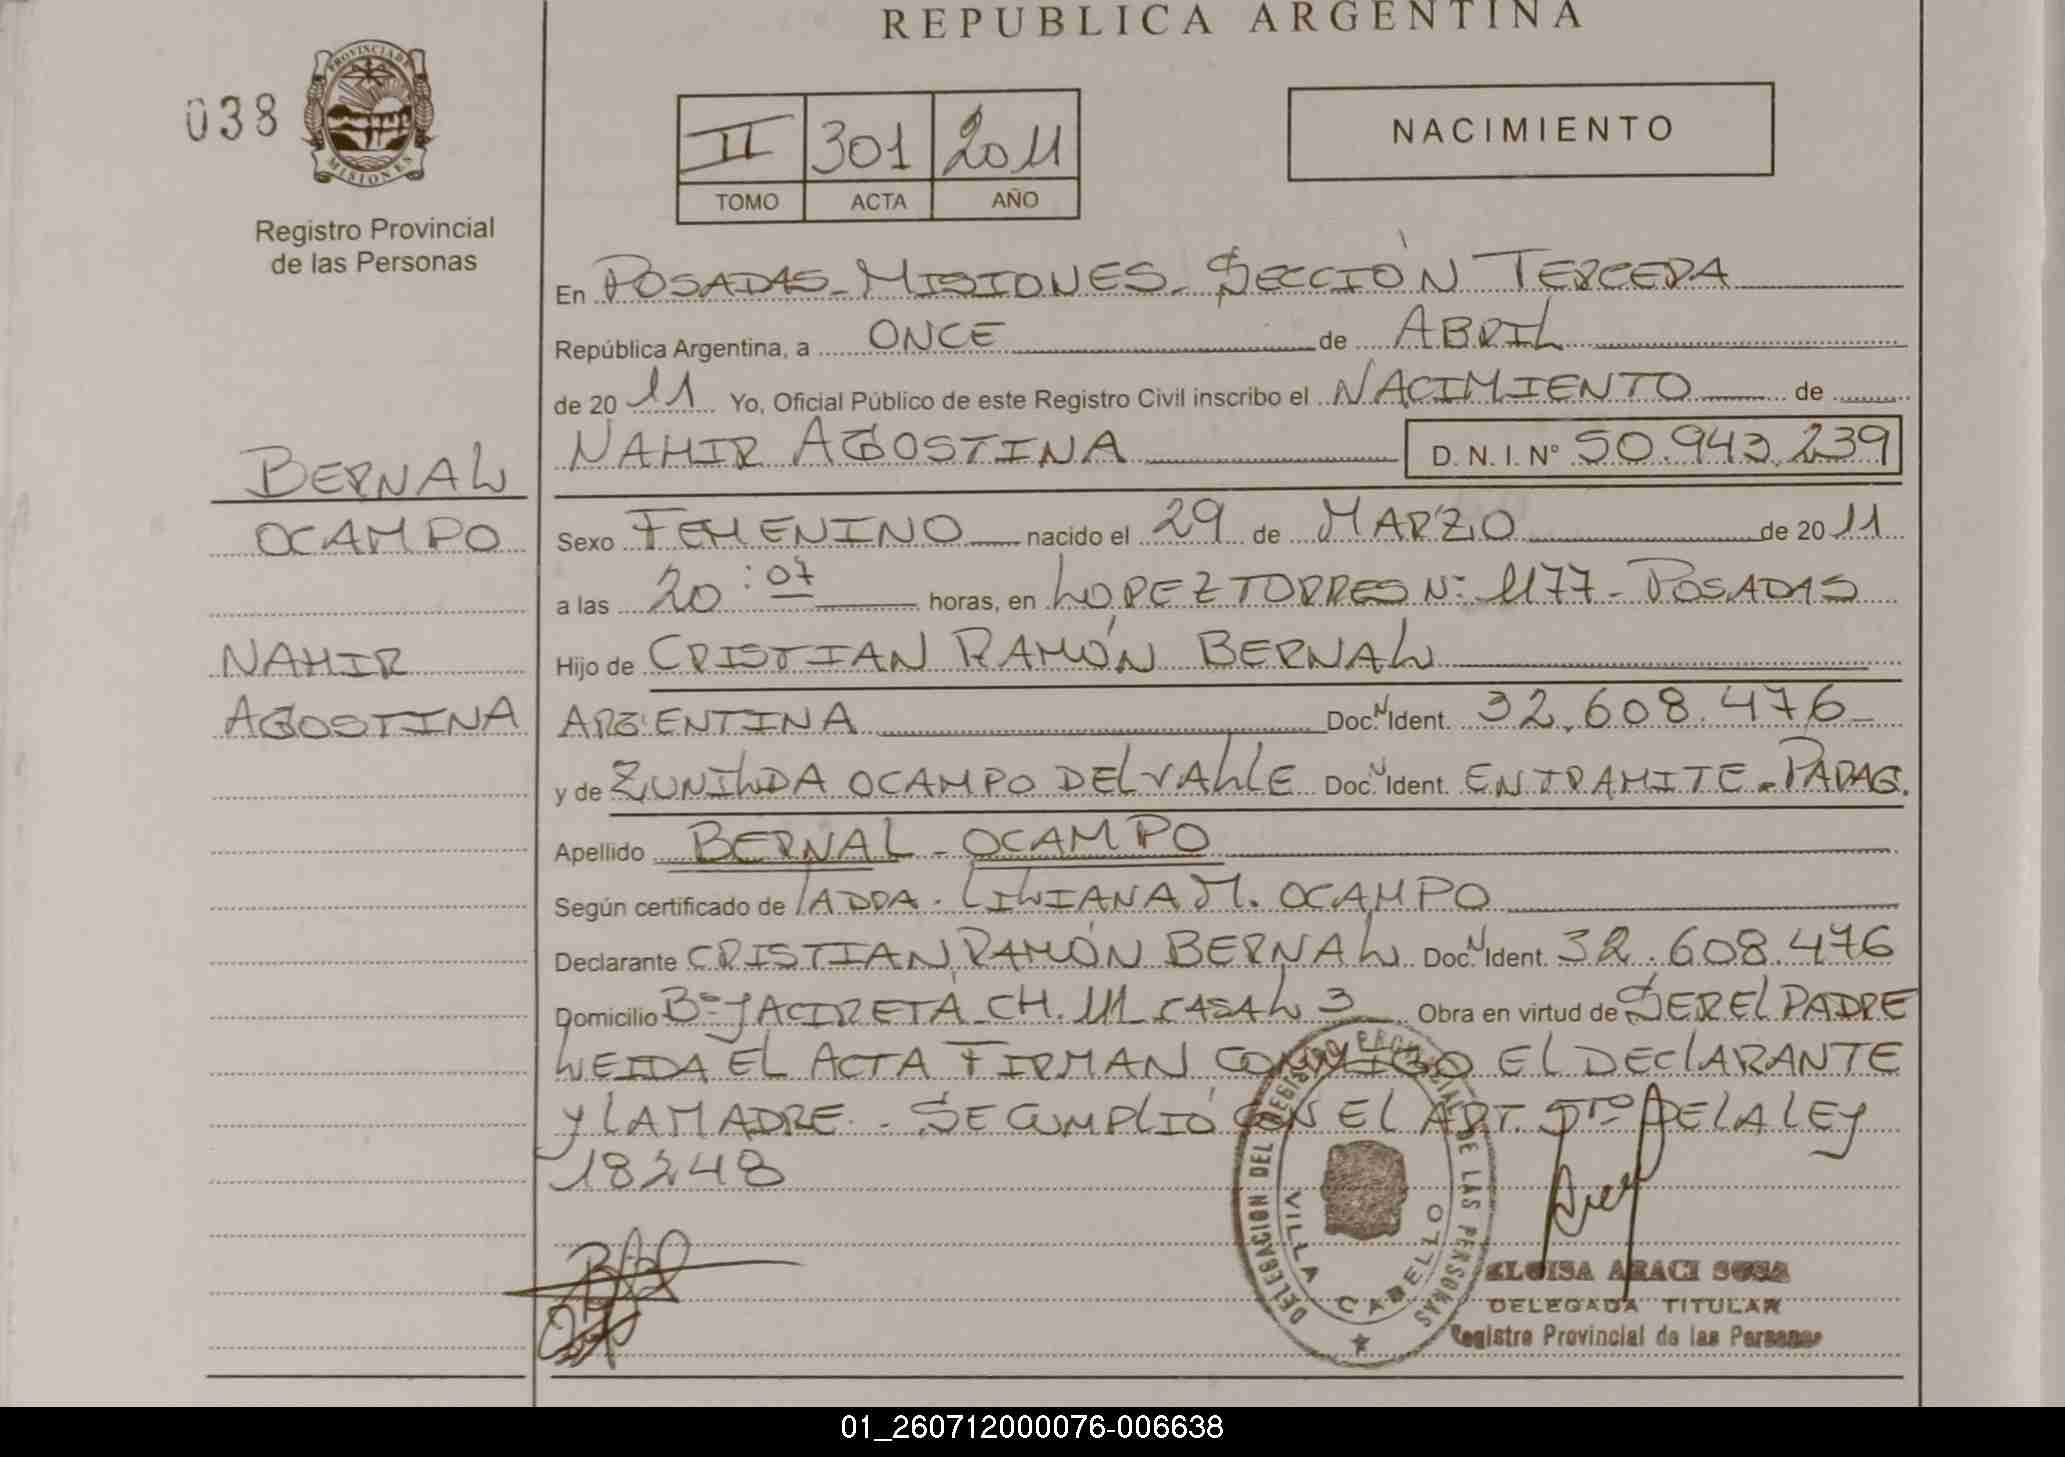 REPUBLICA ARGENTINA
038
PROVINCIA DE
MISIONES
Registro Provincial
de las Personas
II 301 2011
TOMO ACTA AÑO
NACIMIENTO
En POSADAS - MISIONES - SECCIÓN TERCERA
República Argentina, a ONCE de ABRIL
de 2011 Yo, Oficial Público de este Registro Civil inscribo el NACIMIENTO de
NAHIR AGOSTINA D.N.I. Nº 50.943.239
BERNAL
OCAMPO
NAHIR
AGOSTINA
Sexo FEMENINO nacido el 29 de MARZO de 2011
a las 20:07 horas, en LOPEZ TORRES Nº 1177 - POSADAS
Hijo de CRISTIAN RAMÓN BERNAL
ARGENTINA Doc. Ident. 32.608.476
y de ZUNILDA OCAMPO DELVALLE Doc. Ident. EN TRAMITE - PARAG.
Apellido BERNAL - OCAMPO
Según certificado de LILIANA M. OCAMPO
Declarante CRISTIAN RAMÓN BERNAL Doc. Ident. 32.608.476
Domicilio Bº YACIRETÁ CH. CASA L 3 Obra en virtud de SER EL PADRE
LEIDA EL ACTA FIRMAN CONMIGO EL DECLARANTE
Y LA MADRE. - SE CUMPLIÓ CON EL ART. 5TO DE LA LEY
18248
DELEGACION DEL REGISTRO PROVINCIAL DE LAS PERSONAS
VILLA CABELLO
ELOISA ARACI SOSA
DELEGADA TITULAR
Registro Provincial de las Personas
01_260712000076-006638